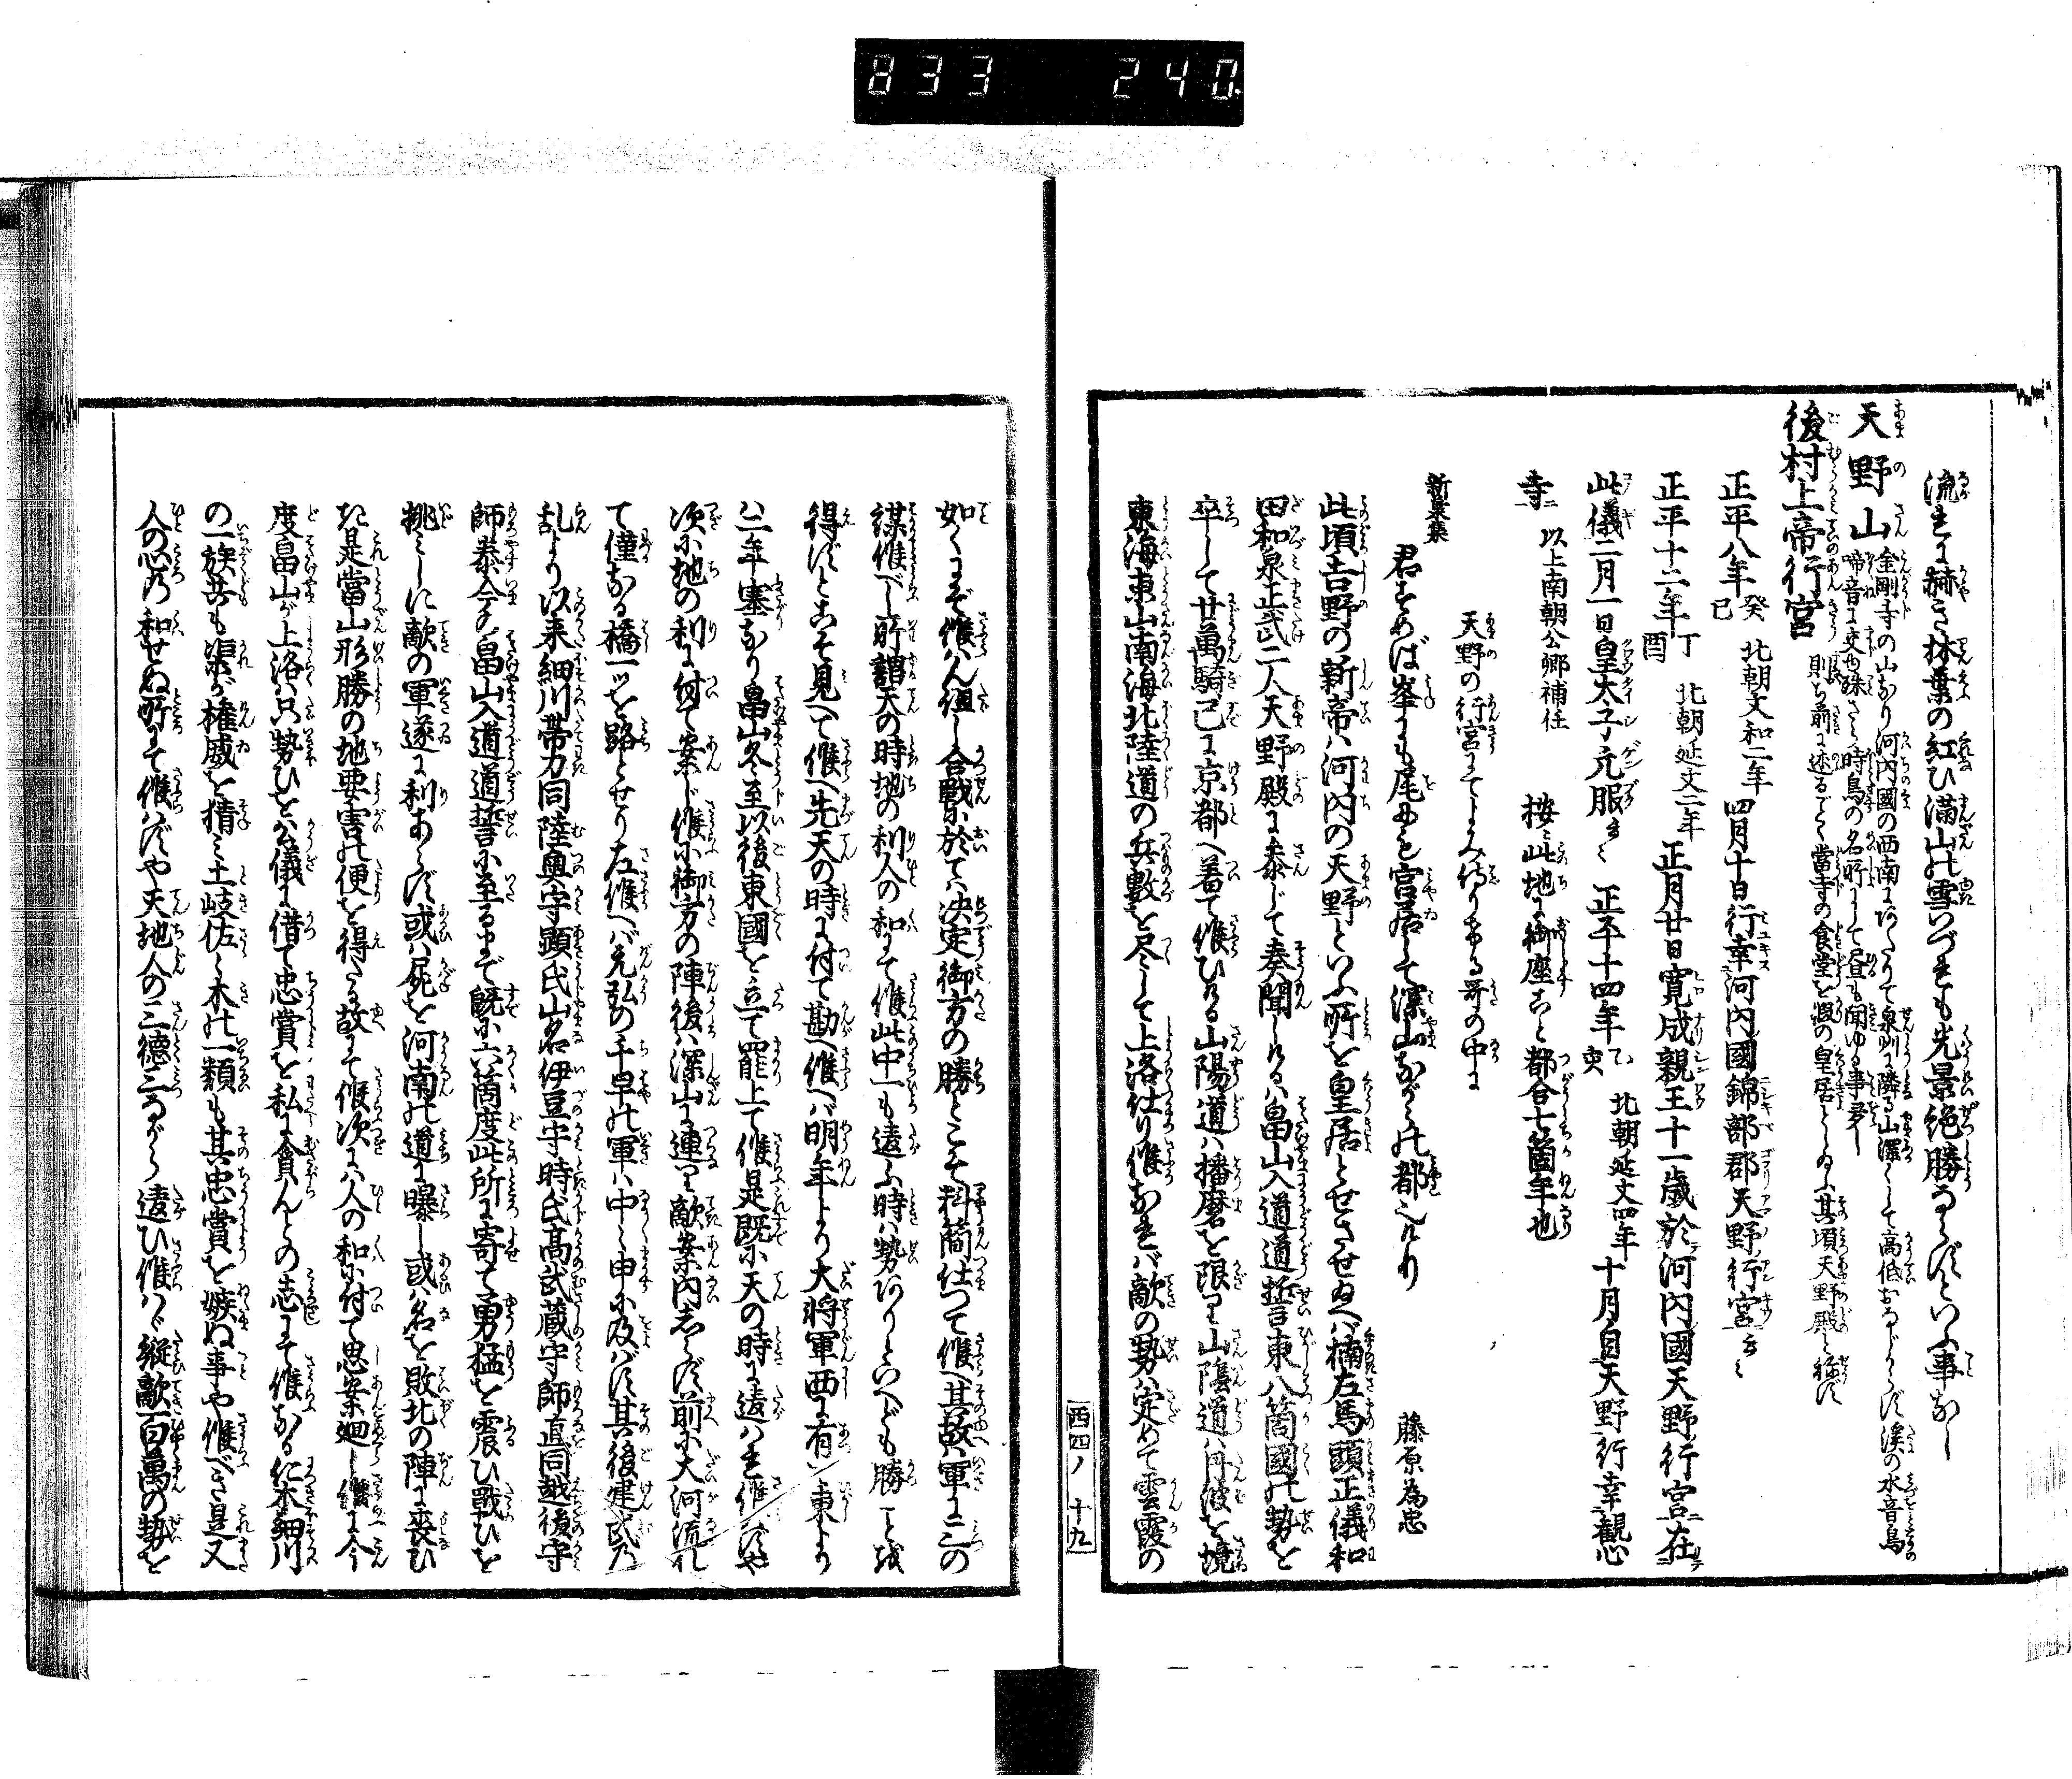 833 240
流るゝに赫き林葉の紅ひ満山の雪いづれも光景絶勝ならずといふ事なし
天野山 金剛寺の山なり河内國の西南にありて泉州に隣る山深くして高低おなじからず溪の水音鳥
啼音に交り殊さら時鳥の名所にして昼も聞ゆる事多し
後村上帝行宮 則ち前に述るごとく當寺の食堂を假の皇居としゐふ其頃天野殿と称ず
正平八年 癸巳 北朝文和二年 四月十日行幸河内國錦部郡天野行宮云々
正平十二年 丁酉 北朝延文二年 正月廿日寛成親王十一歳於河内國天野行宮在
此儀二月一日皇太子元服云々 正平十四年 己亥 北朝延文四年 十月自天野行幸観心
寺 以上南朝公卿補任 按ニ此地に御座こと都合七箇年也
新葉集 天野の行宮にてよみ侍りける哥の中に
君すめば峯にも尾にも宮居して深山ながらの都なりけり 藤原為忠
此頃吉野の新帝ハ河内の天野といふ所を皇居とせさせゐへバ楠左馬頭正儀和
田和泉正武二人天野殿に参じて奏聞しけるハ畠山入道道誓東八箇國の勢を
卒して廿萬騎已に京都へ着て候ひける山陽道ハ播磨を限り山陰道ハ丹波を境
東海東山南海北陸道の兵數を尽して上洛仕り候なれバ敵の勢ハ定めて雲霞の
西四ノ十九
如くにぞ候らん但し合戰に於てハ决定御方の勝とこそ料簡仕つて候へ其故ハ軍に三の
謀候べし所謂天の時地の利人の和にて候此中一も違ふ時ハ勢ありといへども勝ことを
得ずとこそ見へて候へ先天の時に付て勘へ候へバ明年より大將軍西に有て東より
ハ三年塞なり畠山冬至以後東國を立て罷上て候是既に天の時に違ハれ候ハずや
次に地の利に付て案じ候に御方の陣後ハ深山に連て敵案内しらず前に大河流れ
て僅なる橋一ツを路とせりさ候へバ元弘の千早の軍ハ中々申に及バず其後建武の
乱より以来細川帯刀同陸奥守顕氏山名伊豆守時氏高武蔵守師直同越後守
師泰今の畠山入道道誓に至るまで既に六箇度此所に寄て勇猛を震ひ戰ひを
挑ミしに敵の軍遂に利あらず或ハ屍を河南の道に曝し或ハ名を敗北の陣に喪ひ
き是當山形勝の地要害の便を得たる故にて候次にハ人の和に付て思案廻し候に今
度畠山が上洛ハ只勢ひを公儀に借て忠賞を私に貪んとの志にて候なる仁木細川
の一族共も渠が権威を猜ミ土岐佐々木の一類も其忠賞を嫉ぬ事や候べき是又
人の心の和せぬ所にて候ハずや天地人の三徳三ながら違ひ候ハヾ縦敵百萬の勢を